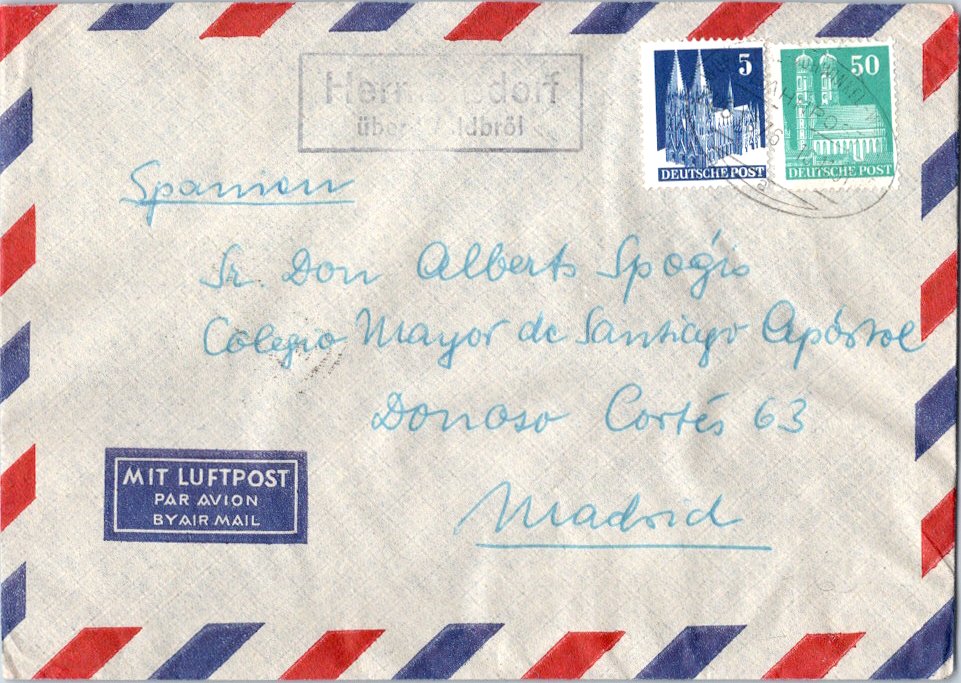 Hermesdorf
über Waldbröl
5
50
DEUTSCHE POST
DEUTSCHE POST
Spanien
Sr. Don Alberto
Colegio Mayor de Santiago Apóstol
Donoso Cortés 63
Madrid
MIT LUFTPOST
PAR AVION
BY AIR MAIL